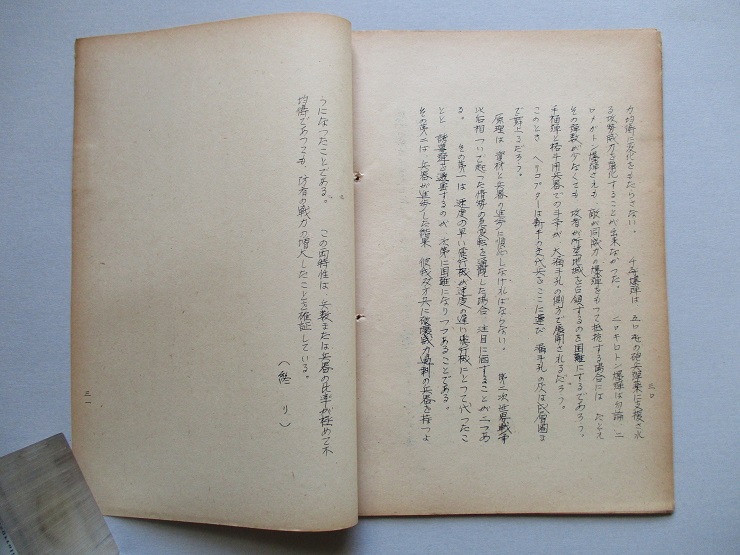 三〇
力均衡に変化をもたらさない。 千年爆弾は 五〇屯の砲兵弾薬に支援され
る攻勢威力を消化することが出来なかつた。 二〇キロトン爆弾は勿論 二
〇メガトン爆弾さえも 敵が同威力の爆弾をもつて抵抗する場合には たとえ
その弾数が少なくても 攻者が所望地域を占領するのを困難にするであろう。
手榴弾と格斗用兵器での斗争が 大漏斗孔の側方で展開されるだろう。
このとき ヘリコプターは新手の交代兵をここに運び 漏斗孔の
で葬るだろう。
原理は 資材と兵器の進歩に慣応しなければならない。 第二次世界戦争
以后相ついで起つた情勢の急変転を通観した場合 注目に価することが二つあ
る。 その第一は 速度の早い飛行機が速度の遅い飛行機にとつて代つたこ
とと 誘導弾を邀撃するのが 次第に困難になりつつあることである。
その第二は 兵器が進歩した結果 彼我双方共に破壊威力過剰の兵器を持つよ
うになつたことである。 この両特性は 兵数または兵器の比率が極めて不
均衡であつても 防者の戦力の増大したことを確証している。
(終り)
三一